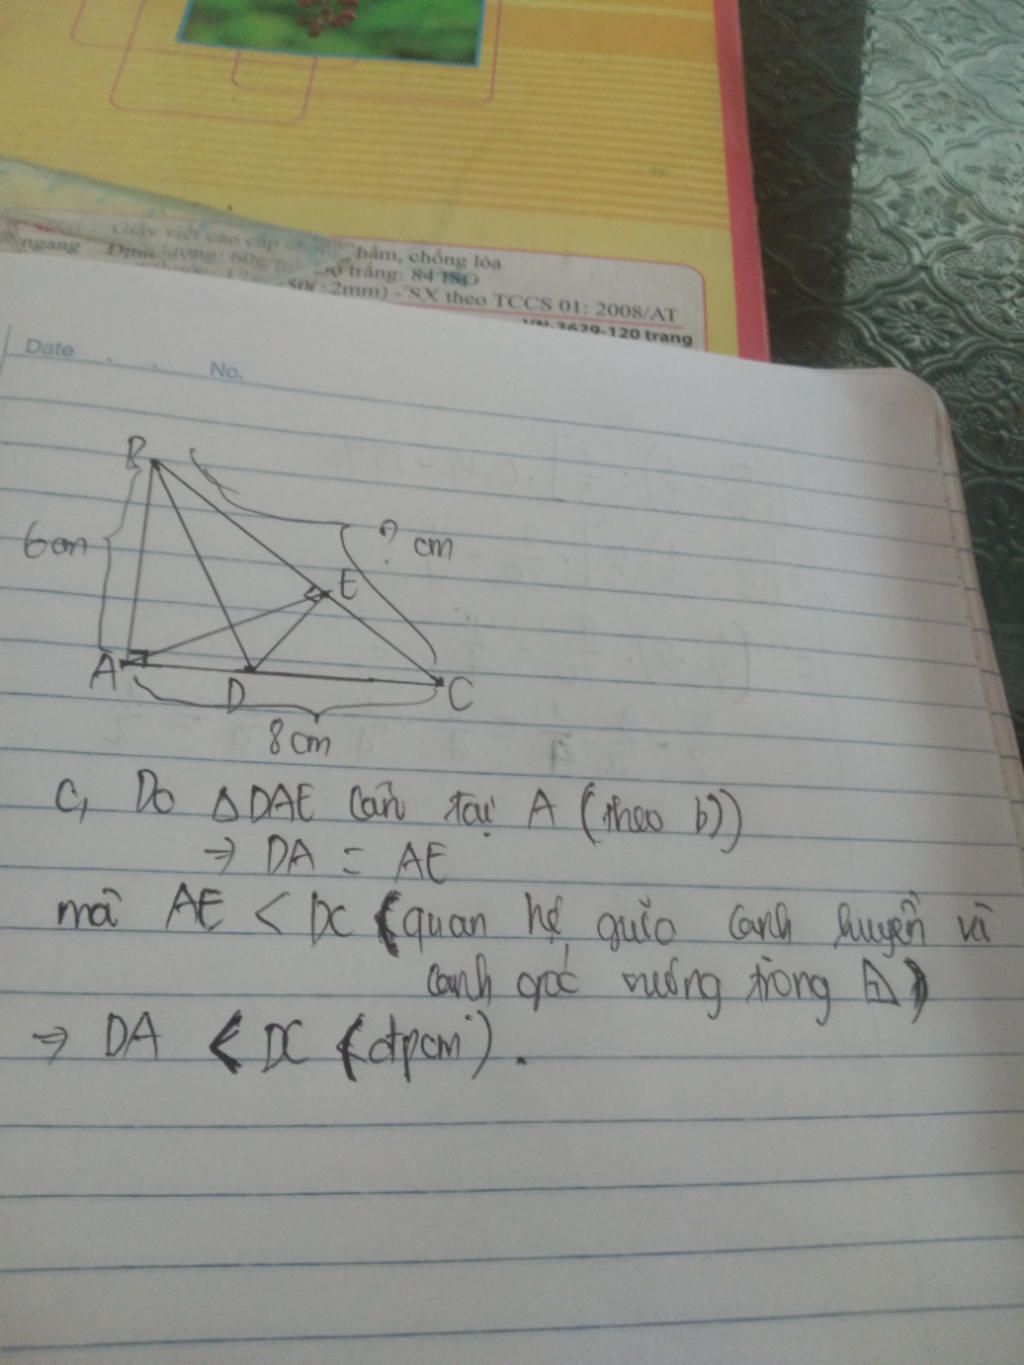 Giấy viết cao cấp
hầm, chống lóa
ngang
Định lượng: 60g
độ trắng: 84 ISO
2mm) - SX theo TCCS 01: 2008/AT
VN-3629-120 trang
Date
No.
B
6cm
? cm
E
A
D
C
8cm
c, Do ΔDAE cân tại A (theo b))
⇒ DA = AE
mà AE < DC (quan hệ giữa cạnh huyền và
cạnh góc vuông trong Δ)
⇒ DA < DC (đpcm).